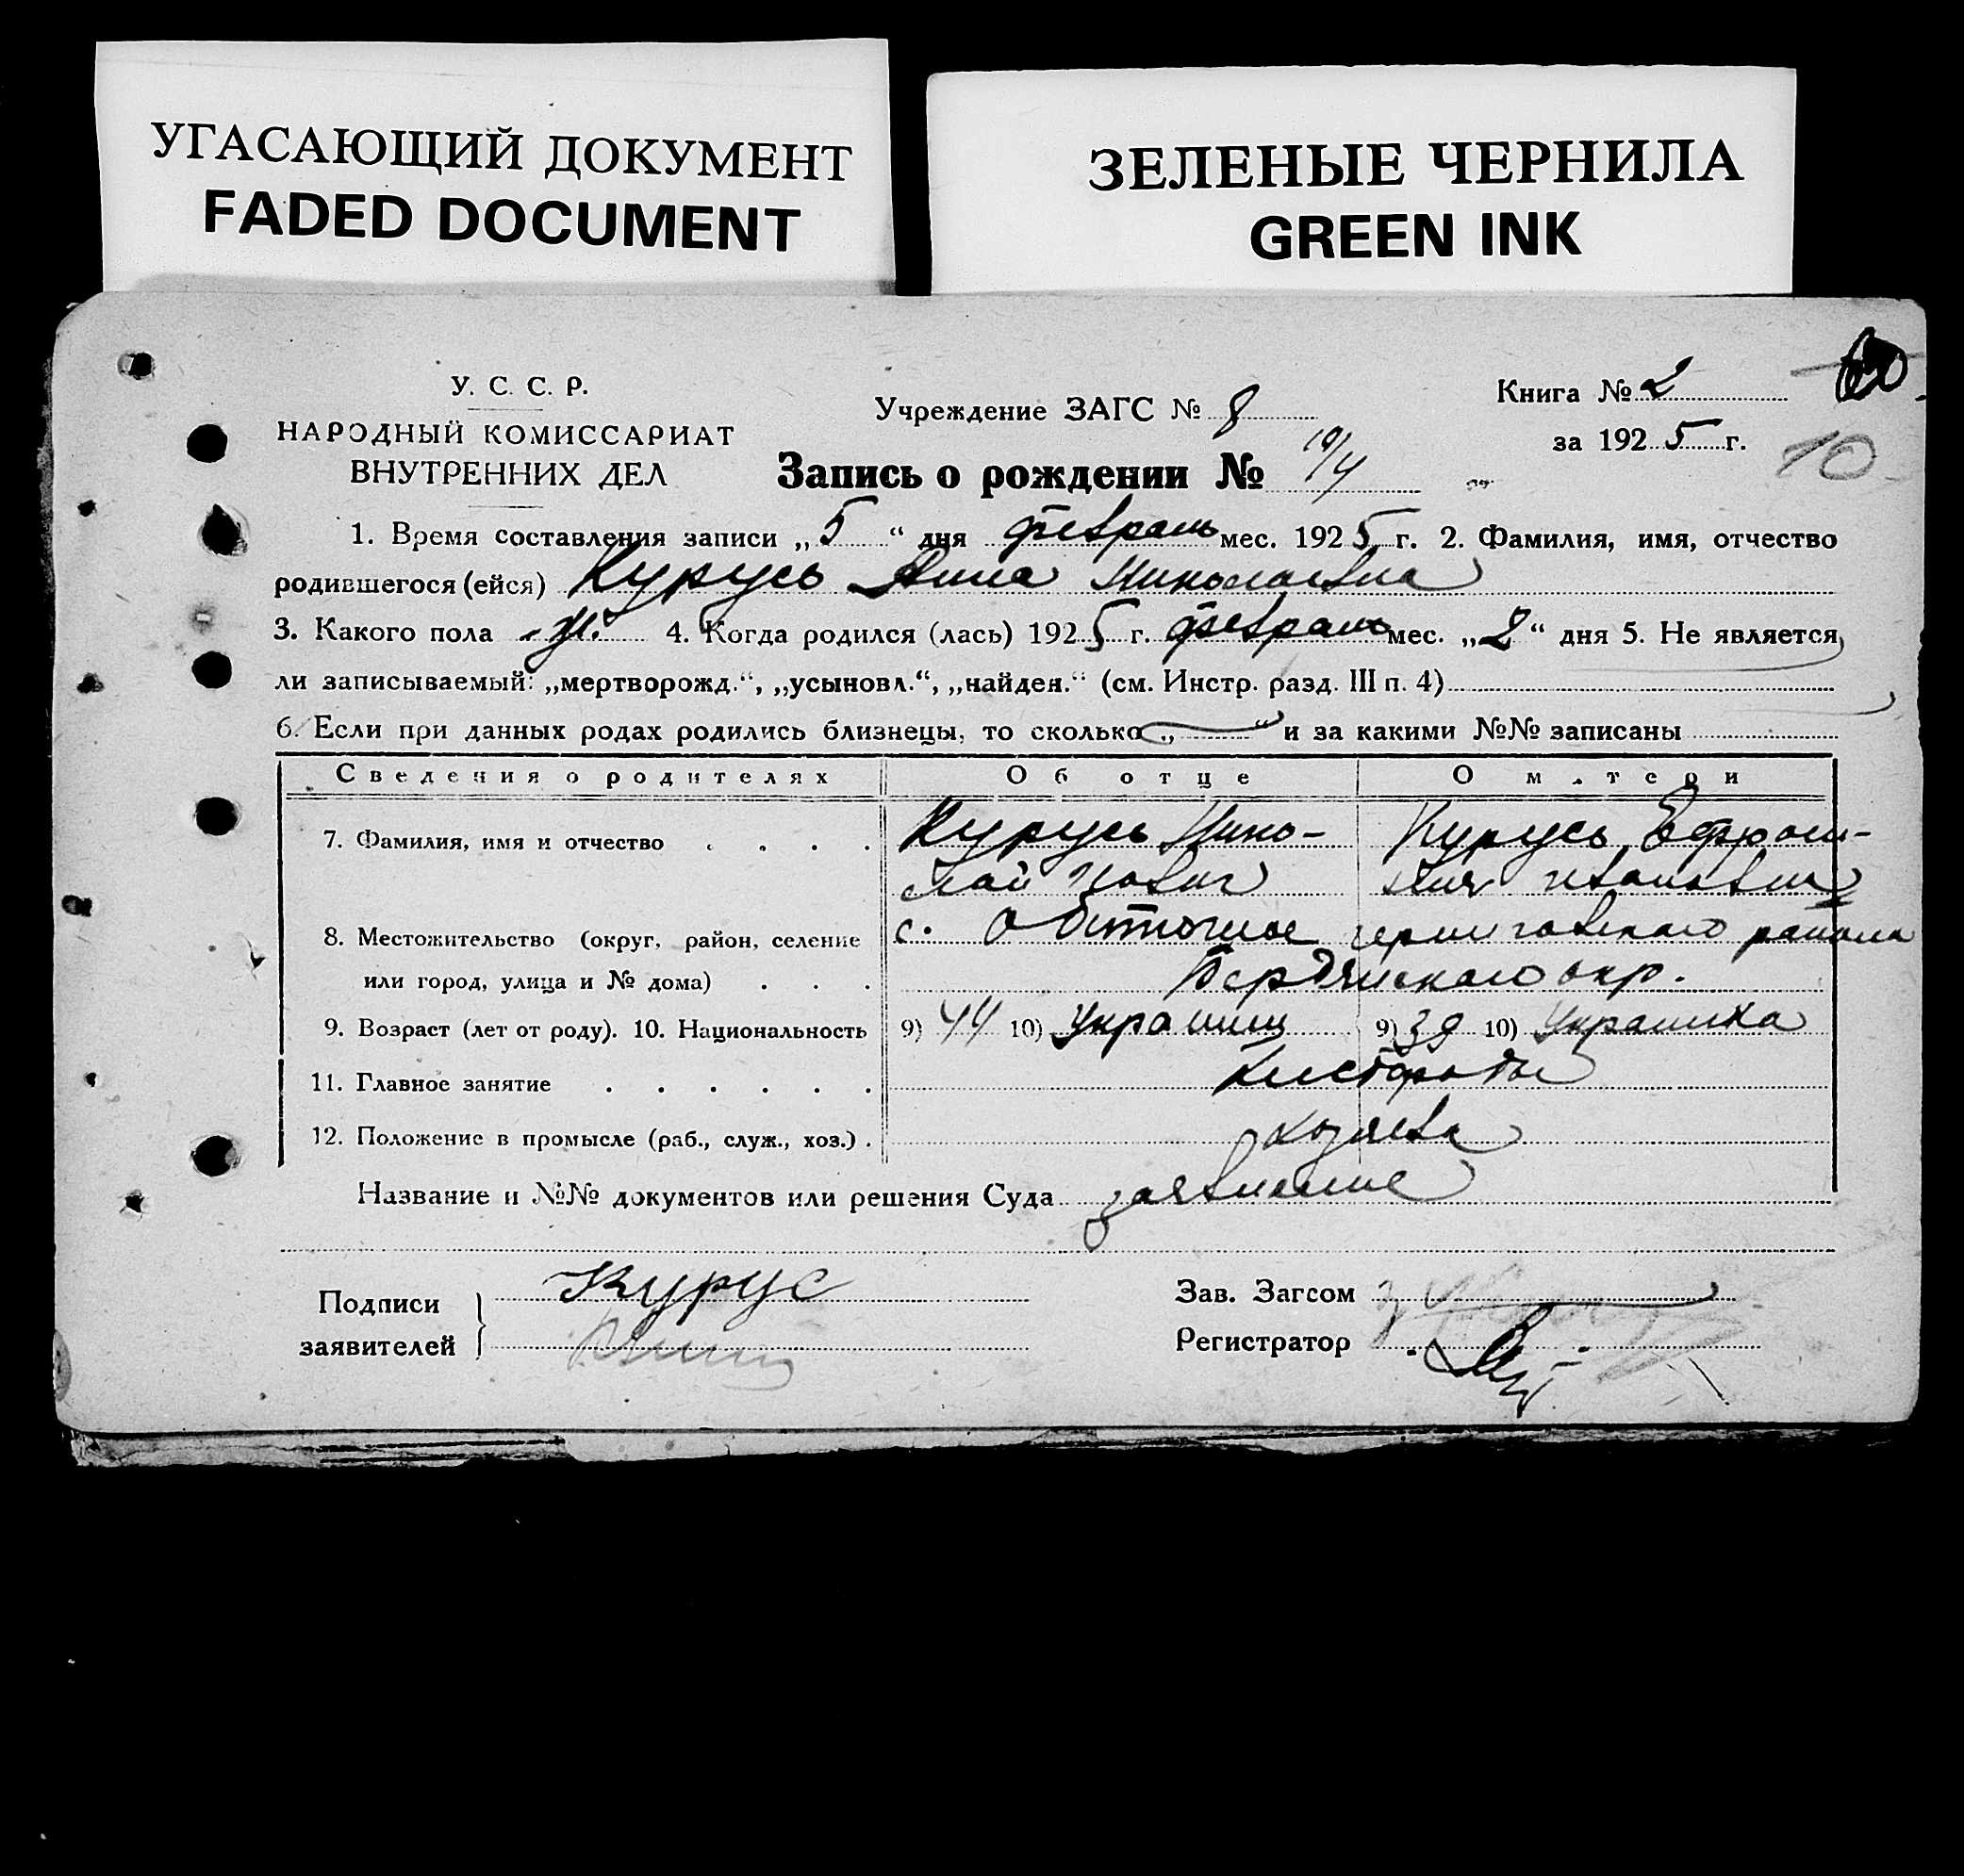 УГАСАЮЩИЙ ДОКУМЕНТ
FADED DOCUMENT
ЗЕЛЕНЫЕ ЧЕРНИЛА
GREEN INK
У. С. С. Р.
НАРОДНЫЙ КОМИССАРИАТ
ВНУТРЕННИХ ДЕЛ
Учреждение ЗАГС № 8
Книга № 2
за 1925 г.
10
Запись о рождении № 10/4
1. Время составления записи „5“ дня февраль мес. 1925 г. 2. Фамилия, имя, отчество
родившегося (ейся) Курусь Анна Николаевна
3. Какого пола ж. 4. Когда родился (лась) 1925 г. февраль мес. „2“ дня 5. Не является
ли записываемый: „мертворожд.“, „усыновл.“, „найден.“ (см. Инстр. разд. III п. 4)
6. Если при данных родах родились близнецы, то сколько „ “ и за какими №№ записаны
Сведения о родителях Об отце О матери
7. Фамилия, имя и отчество . . . . Курусь Нико- Курусь Ефроси-
лай ния Ивановна
8. Местожительство (округ, район, селение с. Обиточное черниговского района
или город, улица и № дома) . . . Бердянского окр.
9. Возраст (лет от роду). 10. Национальность 9) 44 10) Украинец 9) 39 10) Украинка
11. Главное занятие . . . . . . Хлеборобы
12. Положение в промысле (раб., служ., хоз.) . хозяева
Название и №№ документов или решения Суда заявление
Подписи Курус
заявителей
Зав. Загсом
Регистратор